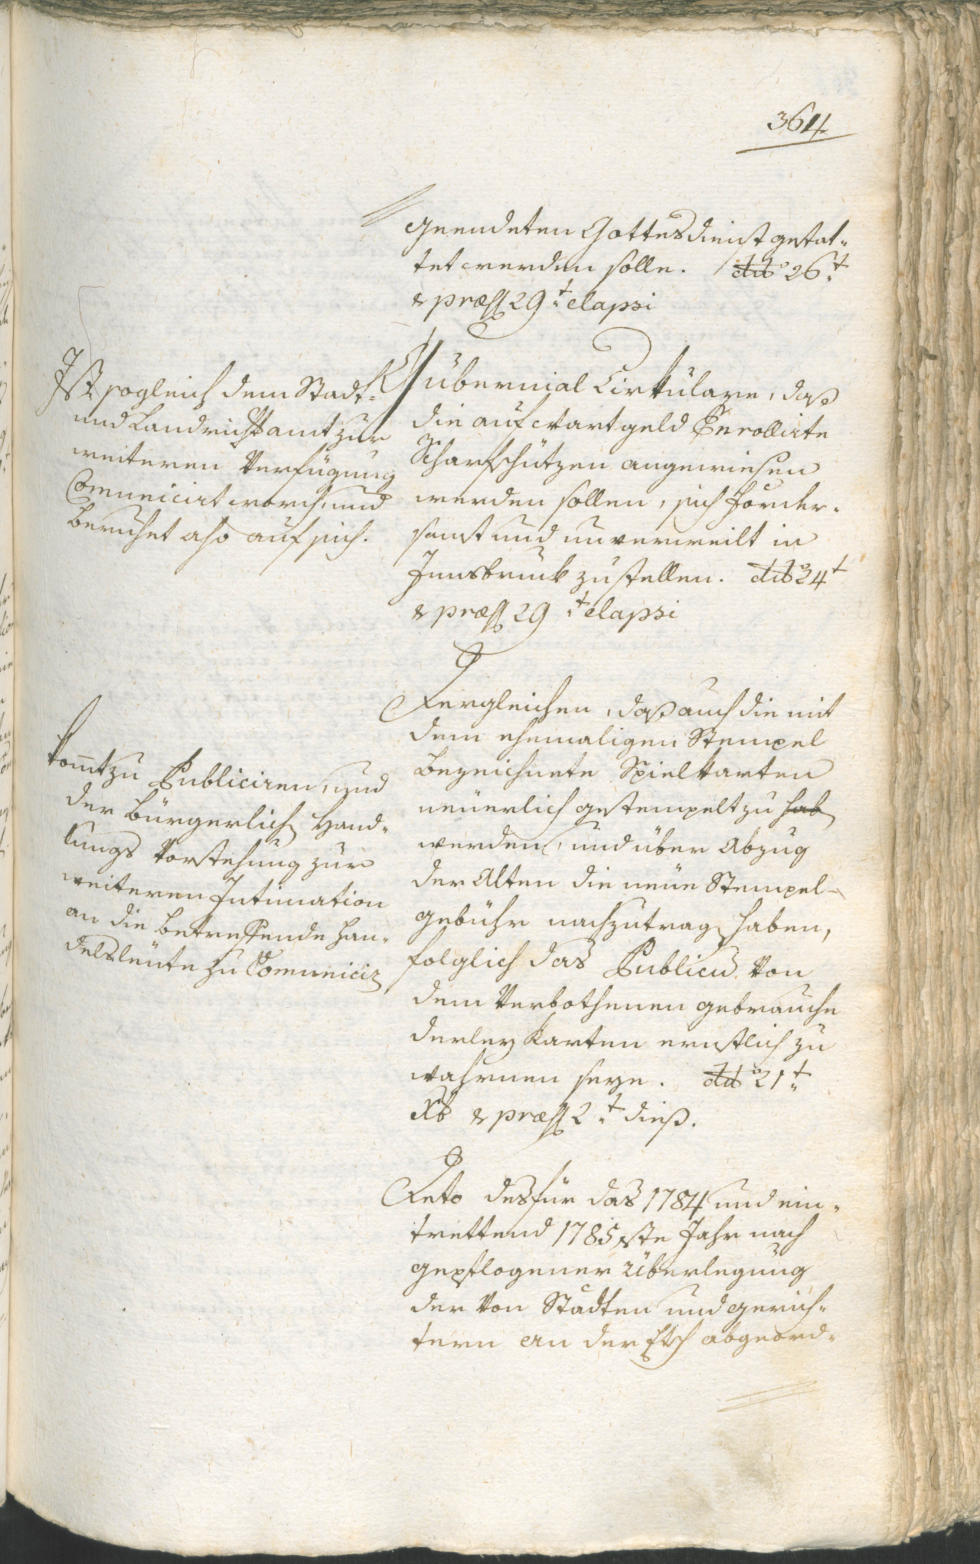 364
geendeten Gottesdienst gestat-
tet werden solle. ddto 26t
& præss 29t elapsi
Ist sogleich dem Stadt-
und Landrichtsamt zur
weiteren Verfügung
Comunicirt word, und
beruhet also auf sich.
Gübernial Cirkulare, daß
die auf Wartgeld Enrollirte
Scharfschützen angewiesen
werden sollen, sich förder-
samst und unverweilt in
Innsbruck zu stellen. ddto 24t
& præss 29t elapsi
Kom̅t zu Publiciren, und
der bürgerlich Hand-
lungs Vorstehung zur
weiteren Intimation
an die betreffende Han-
delsleüte zu Comunicir
Dergleichen, daß auch die mit
dem ehemaligen Stempel
bezeichnete Spielkarten
neüerlich gestempelt zu hab
werden, und über Abzug
der Alten die neüe Stempel-
gebühr nachzutrag haben,
folglich das Publicu von
dem verbothenen gebrauche
derley Karten ernstlich zu
wahrnen seye. ddto 21t
Xb & præss 2t dieß.
Deto des für das 1784 und ein-
trettend 1785ste Jahr nach
gepflogener Überlegung
der von Städten und gerich-
tern an der Etsch abgeord-